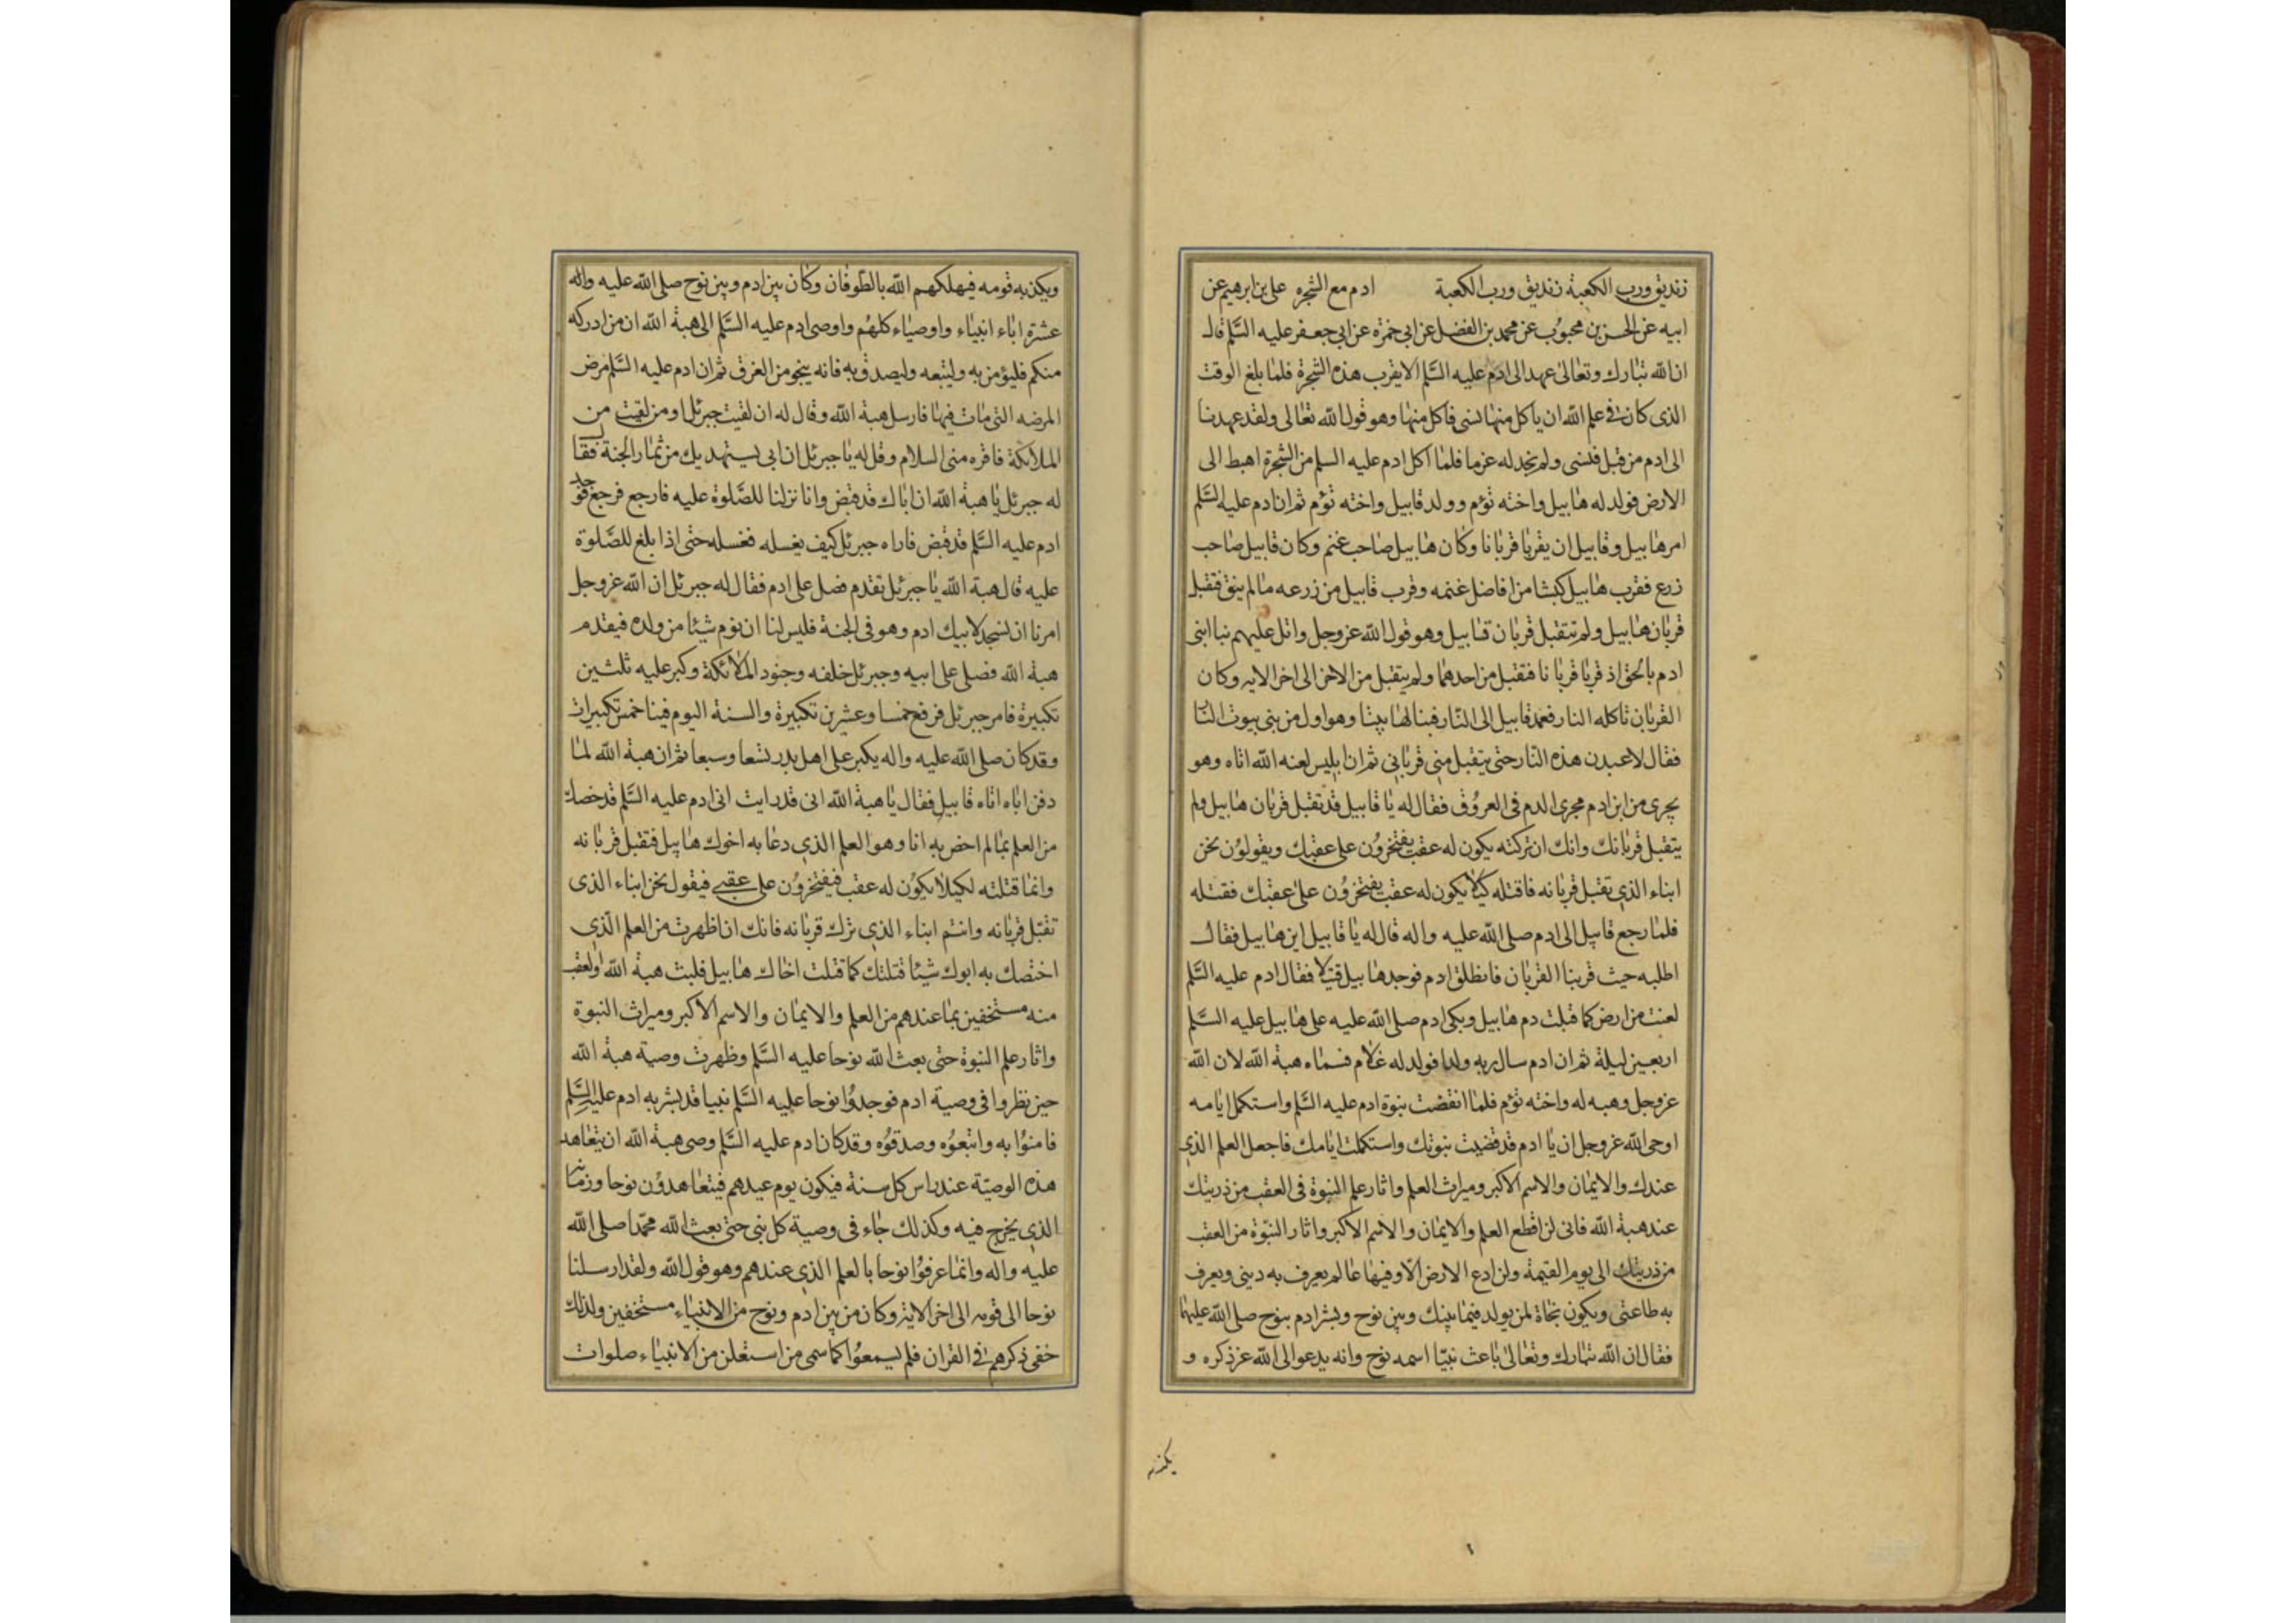 زنديق ورب الكعبة زنديق ورب الكعبة ادم مع الشجره على بن ابرهيم عن
ابيه عن الحسن بن محبوب عن محمد بن الفضل عن ابى حمزه عن ابى جعفر عليه السلم قال
ان الله تبارك وتعالى عهد الى ادم عليه السلم الا يقرب هذه الشجرة فلما بلغ الوقت
الذى كان فى علم الله ان ياكل منها نسى فاكل منها وهو قول الله تعالى ولقد عهدنا
الى ادم من قبل فنسى ولم نجد له عزما فلما اكل ادم عليه السلم من الشجرة اهبط الى
الارض فولد له هابيل واخته تؤم وولد قابيل واخته تؤم ثم ان ادم عليه السلم
امر هابيل وقابيل ان يقربا قربانا وكان هابيل صاحب غنم وكان قابيل صاحب
زرع فقرب هابيل كبشا من افاضل غنمه وقرب قابيل من زرعه مالم ينق فتقبل
قربان هابيل ولم تتقبل قربان قابيل وهو قول الله عز وجل واتل عليهم نبا ابنى
ادم بالحق اذ قربا قربانا فتقبل من احدهما ولم يتقبل من الاخر الى اخر الايه وكان
القربان تاكله النار فعمد قابيل الى النار فبنا لها بيتا وهو اول من بنى بيوت النار
فقال لاعبدن هذه النار حتى يتقبل منى قربانى ثم ان ابليس لعنه الله اتاه وهو
يجرى من ابن ادم مجرى الدم فى العروق فقال له يا قابيل قد تقبل قربان هابيل ولم
يتقبل قربانك وانك ان تركته يكون له عقب يفتخرون على عقبك ويقولون نحن
ابناء الذى تقبل قربانه فاقتله كيلا يكون له عقب يفتخرون على عقبك فقتله
فلما رجع قابيل الى ادم صلى الله عليه واله قال له يا قابيل اين هابيل فقال
اطلبه حيث قربنا القربان فانطلق ادم فوجد هابيل قتيلا فقال ادم عليه السلم
لعنت من ارض كما قبلت دم هابيل وبكى ادم صلى الله عليه على هابيل عليه السلم
اربعين ليلة ثم ان ادم سال ربه ولدا فولد له غلام فسماه هبة الله لان الله
عز وجل وهبه له واخته تؤم فلما انقضت نبوة ادم عليه السلم واستكمل ايامه
اوحى الله عز وجل ان يا ادم قد قضيت نبوتك واستكملت ايامك فاجعل العلم الذى
عندك والايمان والاسم الاكبر وميراث العلم واثار علم النبوة فى العقب من ذريتك
عند هبة الله فانى لن اقطع العلم والايمان والاسم الاكبر واثار النبوة من العقب
من ذريتك الى يوم القيمة ولن ادع الارض الا وفيها عالم يعرف به دينى ويعرف
به طاعتى ويكون نجاة لمن يولد فيما بينك وبين نوح وبشر ادم بنوح صلى الله عليهما
فقال ان الله تبارك وتعالى باعث نبيا اسمه نوح وانه يدعو الى الله عز ذكره و
يكذبه
ويكذبه قومه فيهلكهم الله بالطوفان وكان بين ادم وبين نوح صلى الله عليه واله
عشرة اباء انبياء واوصياء كلهم واوصى ادم عليه السلم الى هبة الله ان من ادركه
منكم فليؤمن به وليتبعه وليصدق به فانه ينجو من الغرق ثم ان ادم عليه السلم مرض
المرضه التى مات فيها فارسل هبة الله وقال له ان لقيت جبرئل او من لقيت من
الملائكة فاقره منى السلام وقل له يا جبرئل ان ابى يستهديك من ثمار الجنة فقال
له جبرئل يا هبة الله ان اباك قد قبض وانا نزلنا للصلوة عليه فارجع فرجع فوجد
ادم عليه السلم قد قبض فاراه جبرئل كيف يغسله فغسله حتى اذا بلغ للصلوة
عليه قال هبة الله يا جبرئل تقدم فصل على ادم فقال له جبرئل ان الله عز وجل
امرنا ان نسجد لابيك ادم وهو فى الجنة فليس لنا ان نوم شيئا من ولده فيقدم
هبة الله فصلى على ابيه وجبرئل خلفه وجنود الملائكة وكبر عليه ثلثين
تكبيرة فامر جبرئل فرفع خمسا وعشرين تكبيرة والسنة اليوم فينا خمس تكبيرات
وقد كان صلى الله عليه واله يكبر على اهل بدر تسعا وسبعا ثم ان هبة الله لما
دفن اباه اتاه قابيل فقال يا هبة الله انى قد رايت ابى ادم عليه السلم قد خصك
من العلم بما لم اخص به انا وهو العلم الذى دعا به اخوك هابيل فتقبل قربانه
وانما قتلته لكيلا يكون له عقب فيفتخرون على عقبى فيقول نحن ابناء الذى
تقبل قربانه وانتم ابناء الذى ترك قربانه فانك ان اظهرت من العلم الذى
اختصك به ابوك شيئا قتلتك كما قتلت اخاك هابيل فلبث هبة الله والعقب
منه مستخفين بما عندهم من العلم والايمان والاسم الاكبر وميراث النبوة
واثار علم النبوة حتى بعث الله نوحا عليه السلم وظهرت وصية هبة الله
حين نظروا فى وصية ادم فوجدوا نوحا عليه السلم نبيا قد بشر به ادم عليه السلم
فامنوا به واتبعوه وصدقوه وقد كان ادم عليه السلم وصى هبة الله ان يتعاهد
هذه الوصية عند راس كل سنة فيكون يوم عيدهم فيتعاهدون نوحا وزمانه
الذى يخرج فيه وكذلك جاء فى وصية كل نبى حتى بعث الله محمدا صلى الله
عليه واله وانما عرفوا نوحا بالعلم الذى عندهم وهو قول الله ولقد ارسلنا
نوحا الى قومه الى اخر الاية وكان من بين ادم ونوح من الانبياء مستخفين ولذلك
خفى ذكرهم فى القران فلم يسمعوا كما سمى من استعلن من الانبياء صلوات